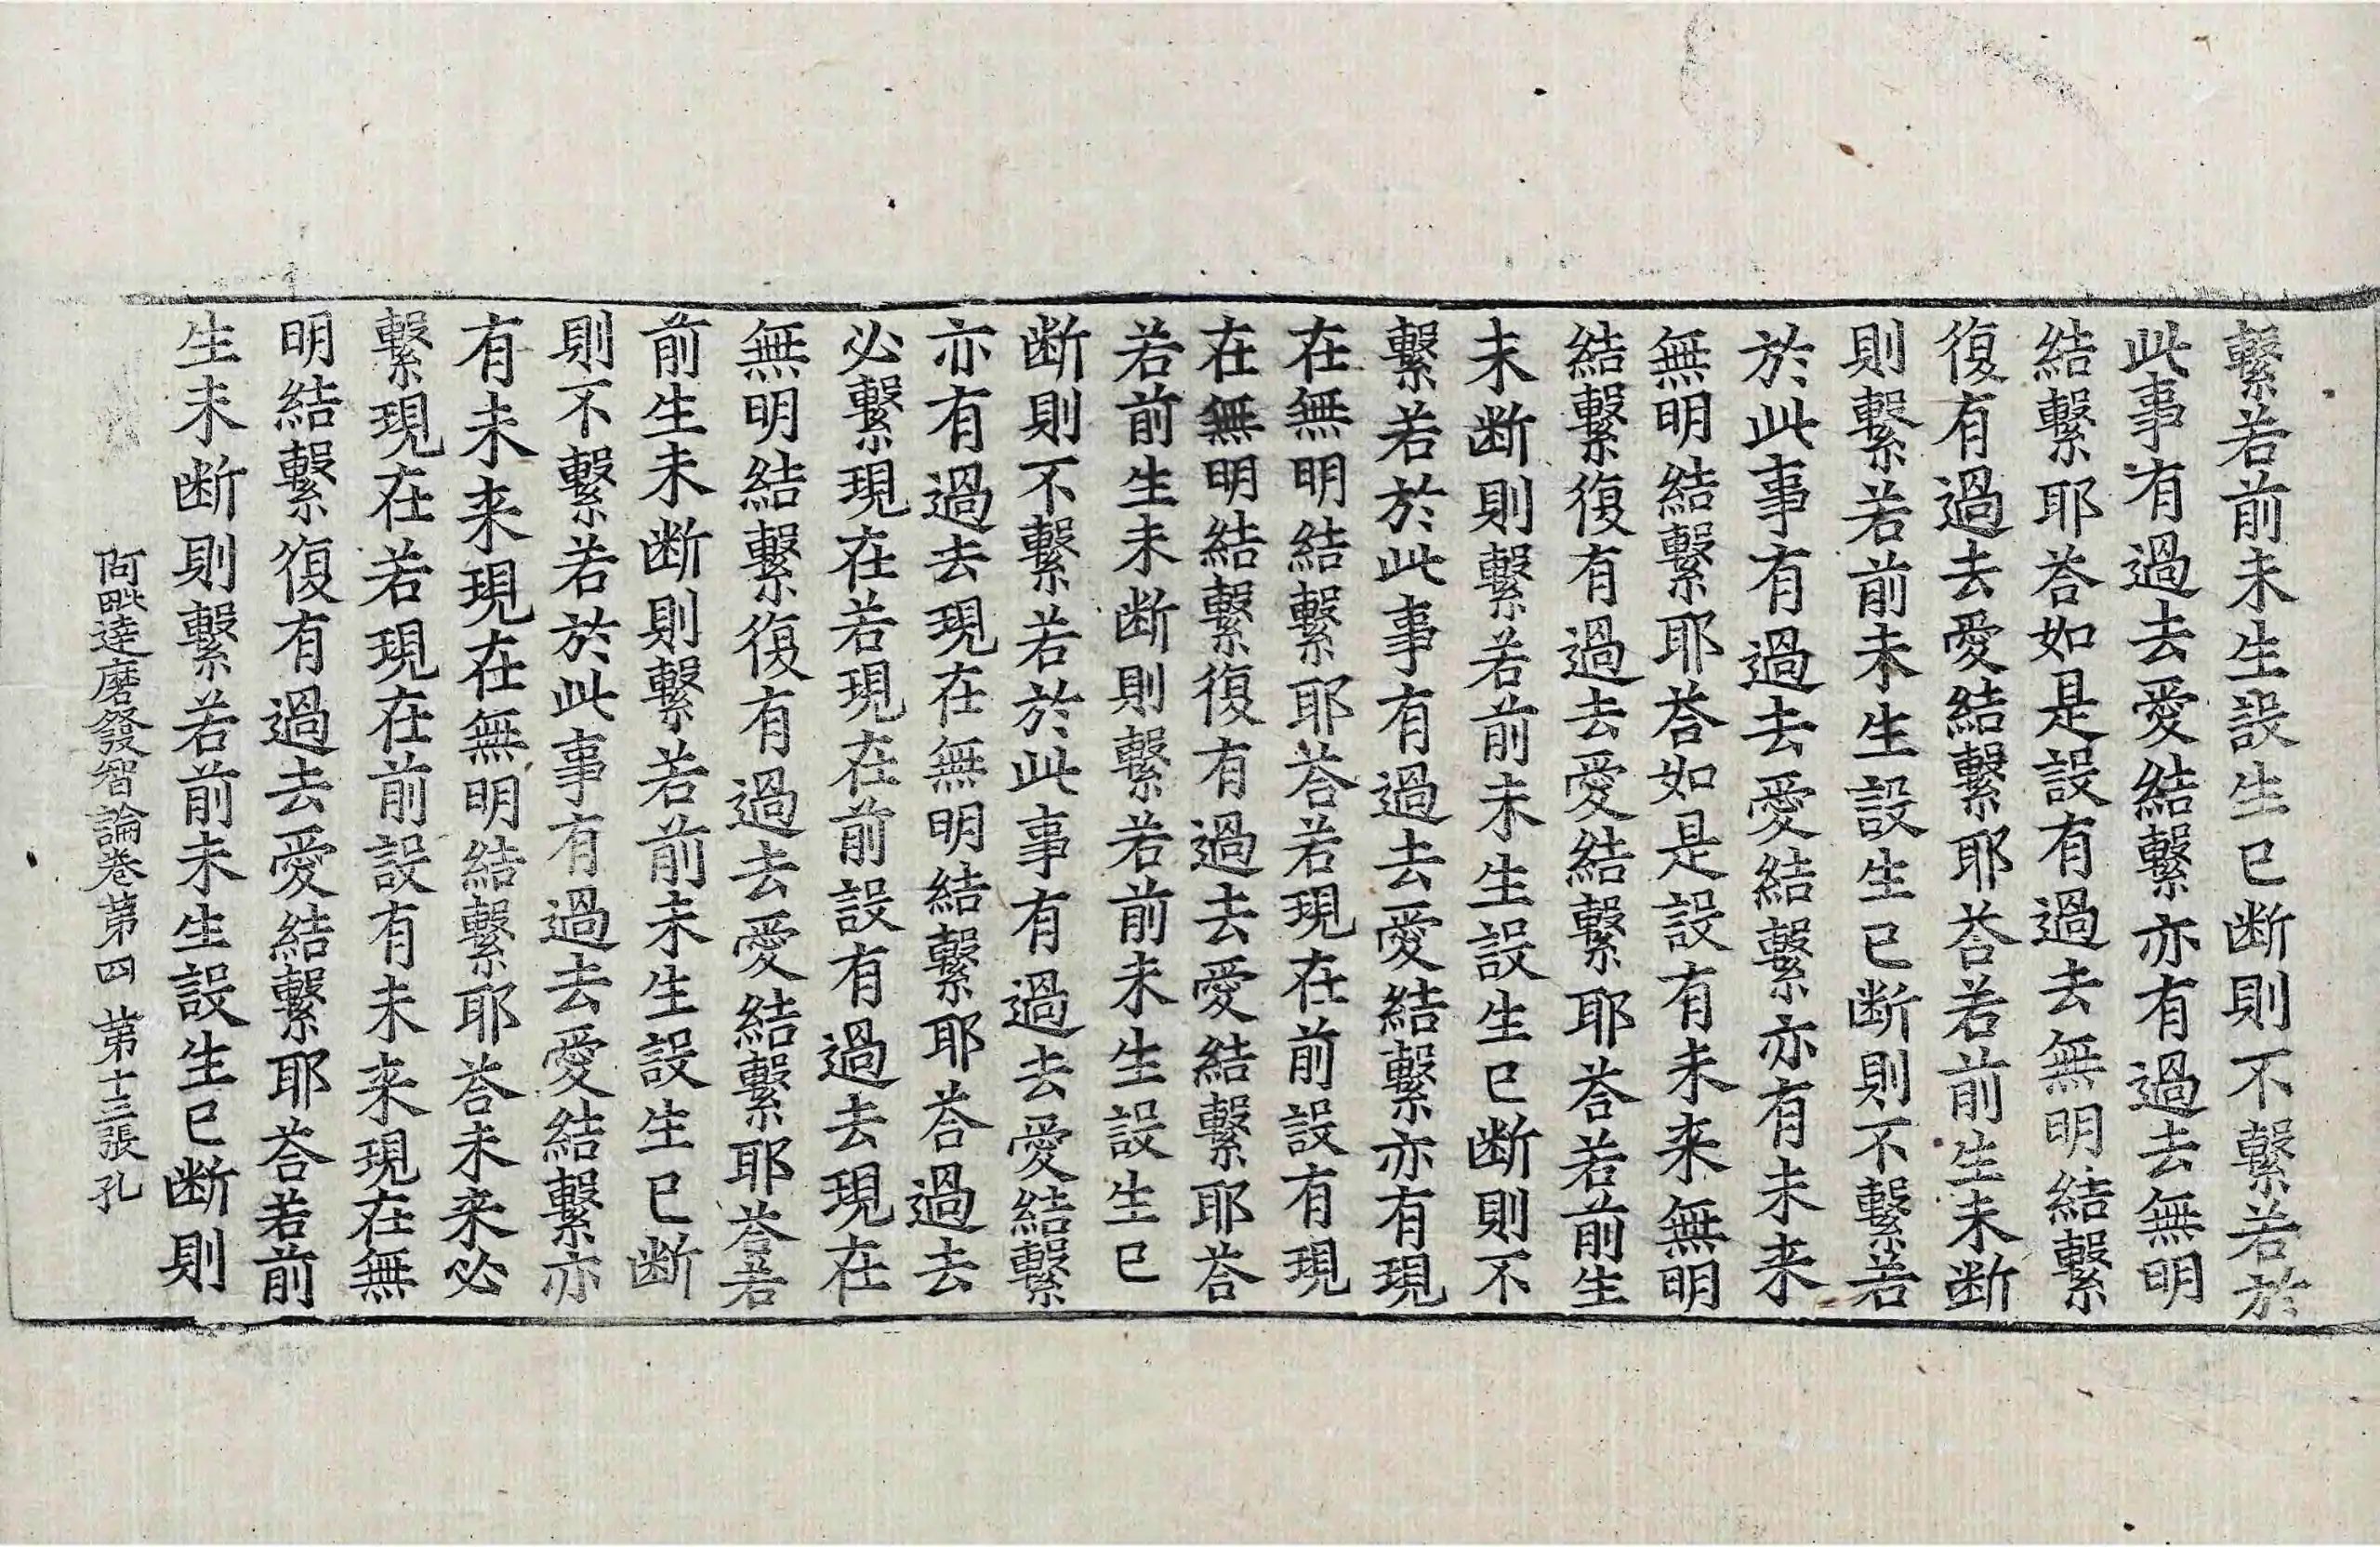 繫若前未生設生已断則不繫若於
此事有過去愛結繫亦有過去無明
結繫耶荅如是設有過去無明結繫
復有過去愛結繫耶荅若前生未断
則繫若前未生設生已断則不繫若
於此事有過去愛結繫亦有未来
無明結繫耶荅如是設有未来無明
結繫復有過去愛結繫耶荅若前生
未断則繫若前未生設生已断則不
繫若於此事有過去愛結繫亦有現
在無明結繫耶荅若現在前設有現
在無明結繫復有過去愛結繫耶荅
若前生未断則繫若前未生設生已
断則不繫若於此事有過去愛結繫
亦有過去現在無明結繫耶荅過去
必繫現在若現在前設有過去現在
無明結繫復有過去愛結繫耶荅若
前生未断則繫若前未生設生已断
則不繫若於此事有過去愛結繫亦
有未来現在無明結繫耶荅未来必
繫現在若現在前設有未来現在無
明結繫復有過去愛結繫耶荅若前
生未断則繫若前未生設生已断則
阿毗達磨發智論卷第四 第十三張 孔